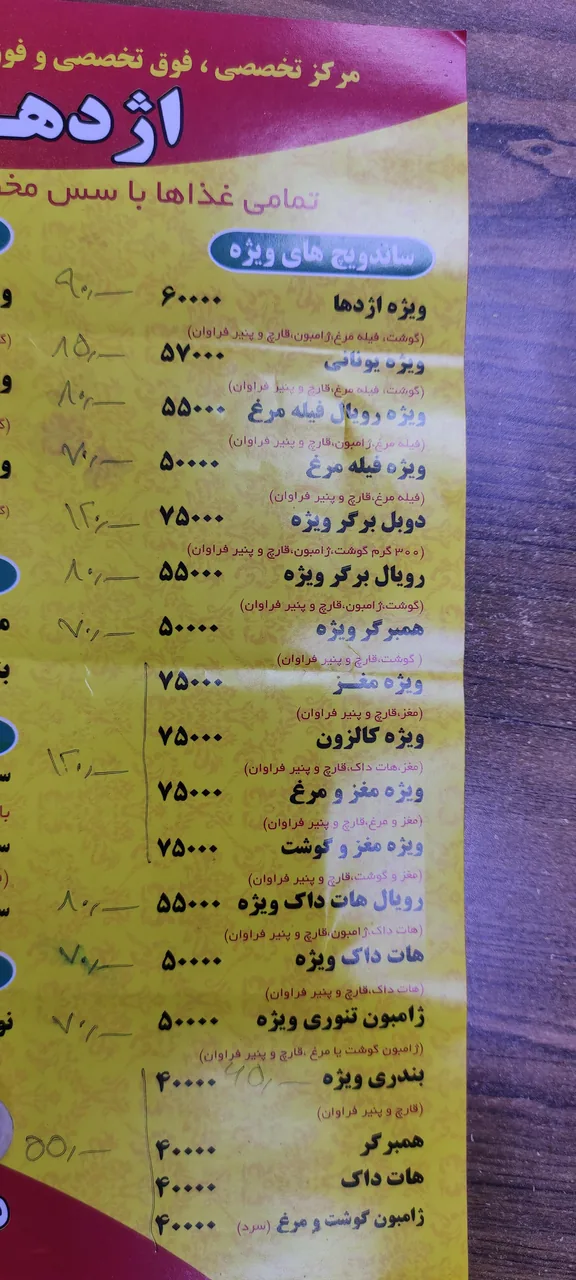 مرکز تخصصی ، فوق تخصصی و
اژدها
تمامی غذاها با سس
ساندویچ های ویژه
ویژه اژدها ۶۰۰۰۰ ۹۰,—
(گوشت، فیله مرغ،ژامبون،قارچ و پنیر فراوان)
ویژه یونانی ۵۷۰۰۰ ۸۵,—
(گوشت، فیله مرغ،قارچ و پنیر فراوان)
ویژه رویال فیله مرغ ۵۵۰۰۰ ۸۰,—
(فیله مرغ،ژامبون،قارچ و پنیر فراوان)
ویژه فیله مرغ ۵۰۰۰۰ ۷۰,—
(فیله مرغ،قارچ و پنیر فراوان)
دوبل برگر ویژه ۷۵۰۰۰ ۱۲۰,—
(۳۰۰ گرم گوشت،ژامبون،قارچ و پنیر فراوان)
رویال برگر ویژه ۵۵۰۰۰ ۸۰,—
(گوشت،ژامبون،قارچ و پنیر فراوان)
همبرگر ویژه ۵۰۰۰۰ ۷۰,—
(گوشت،قارچ و پنیر فراوان)
ویژه مغـــز ۷۵۰۰۰
(مغز،قارچ و پنیر فراوان)
ویژه کالزون ۷۵۰۰۰ ۱۲۰,—
(مغز،هات داک،قارچ و پنیر فراوان)
ویژه مغز و مرغ ۷۵۰۰۰
(مغز و مرغ،قارچ و پنیر فراوان)
ویژه مغز و گوشت ۷۵۰۰۰
(مغز و گوشت،قارچ و پنیر فراوان)
رویال هات داک ویژه ۵۵۰۰۰ ۸۰,—
(هات داک،ژامبون،قارچ و پنیر فراوان)
هات داک ویژه ۵۰۰۰۰ ۷۰,—
(هات داک،قارچ و پنیر فراوان)
ژامبون تنوری ویژه ۵۰۰۰۰ ۷۰,—
(ژامبون گوشت یا مرغ ،قارچ و پنیر فراوان)
بندری ویژه ۴۰۰۰۰
(قارچ و پنیر فراوان)
همبرگر ۴۰۰۰۰ ۵۵,—
هات داک ۴۰۰۰۰
ژامبون گوشت و مرغ (سرد) ۴۰۰۰۰